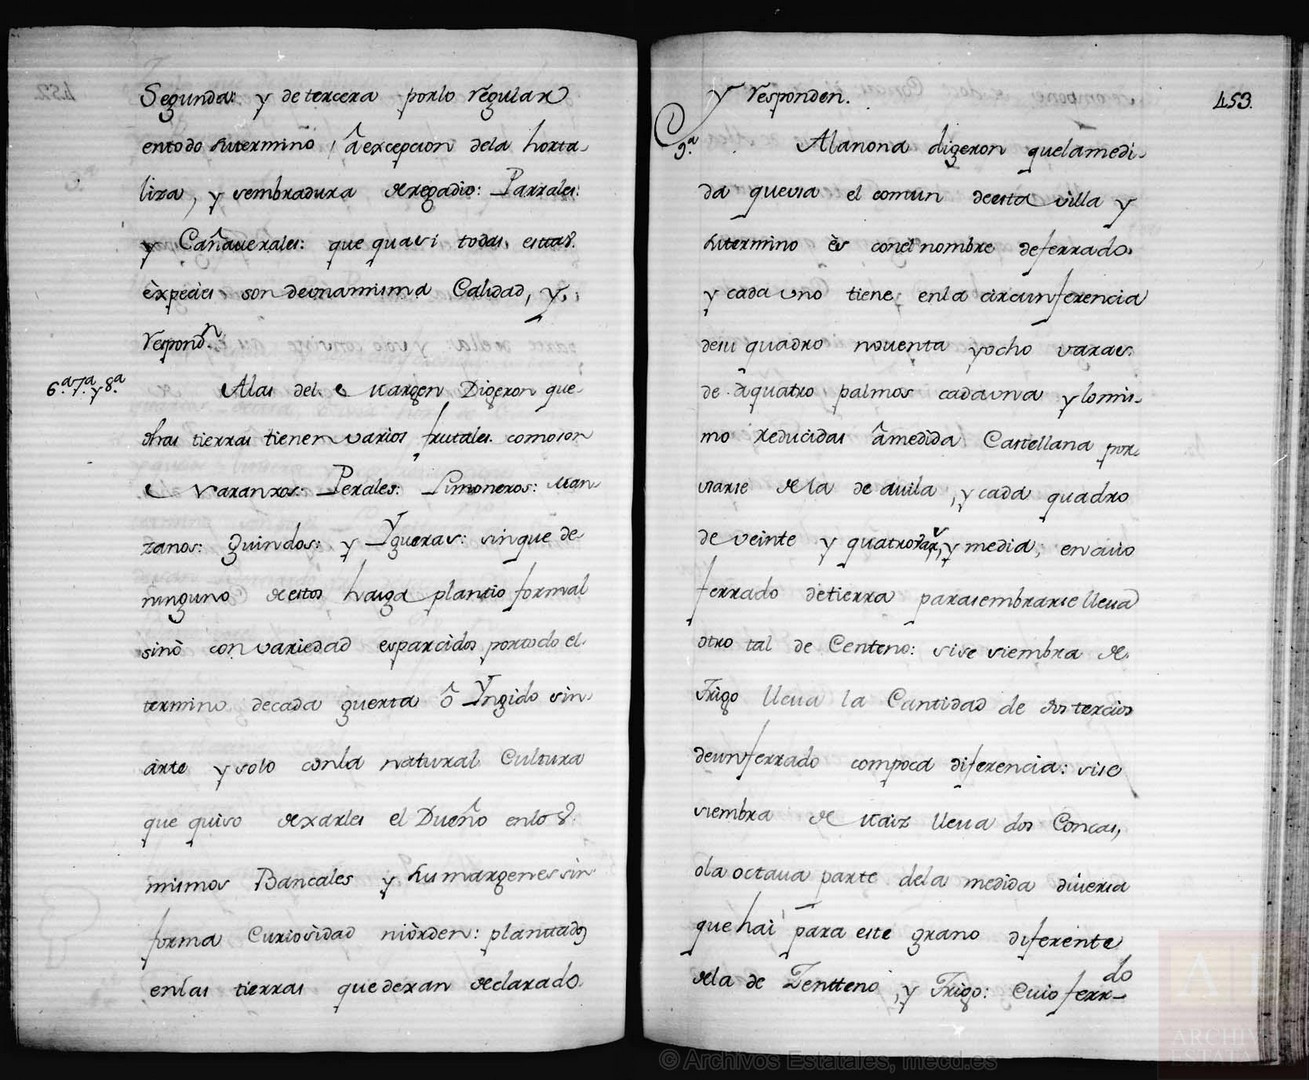 Segunda: y de tercera porlo regular
entodo sutermino, â excepcion dela horta-
liza, y sembradura deregadio: Parrales:
y Cañauerales: que quasi todas, estas
êxpecies son deunamisma Calidad, y,
respond.n
6.a 7.a y 8.a Alas del Margen Digeron que
dhas tierras tienen varios frutales como son
Naranxos: Perales: Limoneros: Man-
zanos: guindos: y Ygueras: sinque de
ninguno destos haiga plantio formal
sinò con variedad esparcidos portodo el
termino decada guerta ô Yngido sin
arte y solo conla natural Cultura
que quiso dexarles el Dueño enlos
mismos Bancales y su margenes sin
forma Curiosidad niòrden: planttados
enlas tierras que dexan declarado
y responden. 453.
9.a Alanona digeron quelamedi-
da queusa el comun deesta villa y
sutermino ês conel nombre deferrado
y cada uno tiene, enla circunferencia
desu quadro nouenta yocho varas
de âquatro palmos cadauna ylomis-
mo reducidas âmedida Castellana por
usarse dela de auila, y cada quadro
de veinte y quatro var.s, y media; encuio
ferrado detierra parasembrarse lleua
otro tal de Centeno: sise siembra de
Trigo lleua la Cantidad de dos tercios
deunferrado compoca diferencia: sise
siembra de Maiz lleua dos Concas,
ola octaua parte dela medida diuersa
que hai para este grano diferente
dela de Zentteno, y Trigo: Cuio ferrdo
© Archivos Estatales, mecd.es
ARCHIVOS
ESTATALES